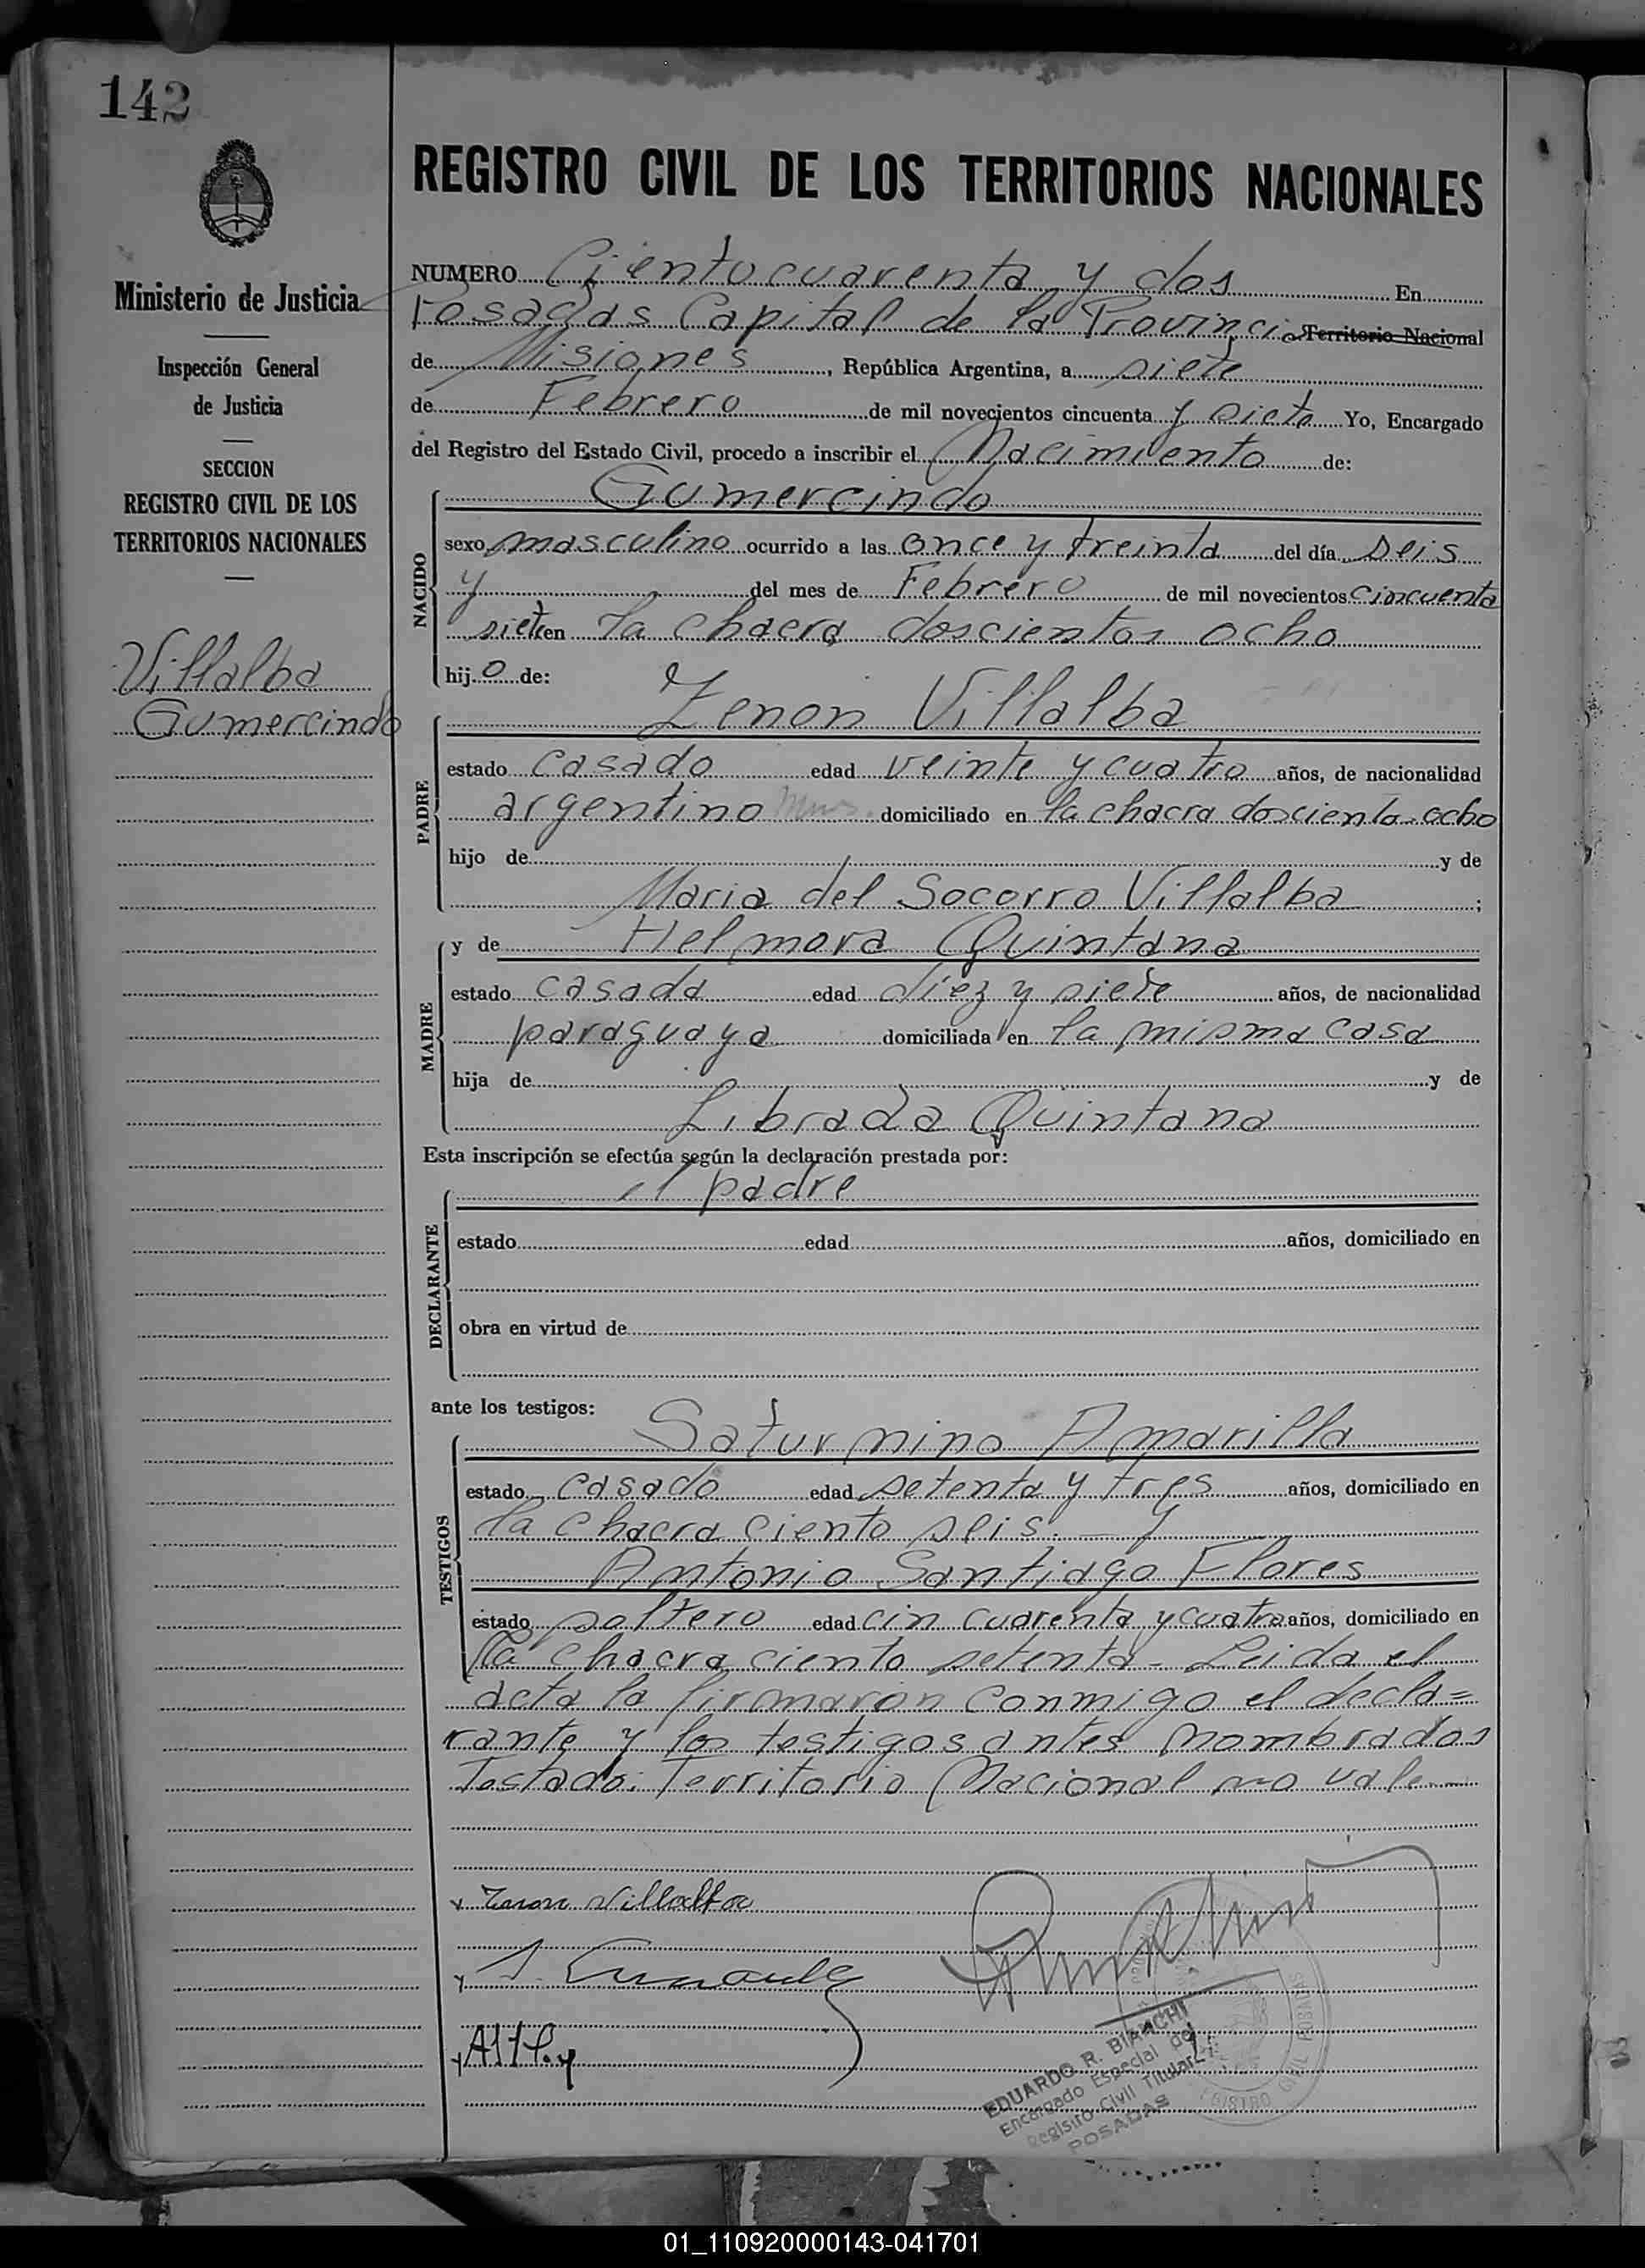 142
REGISTRO CIVIL DE LOS TERRITORIOS NACIONALES
Ministerio de Justicia
Inspección General
de Justicia
SECCION
REGISTRO CIVIL DE LOS
TERRITORIOS NACIONALES
Villalba
Gumercindo
NUMERO Ciento cuarenta y dos En
Posadas Capital de la Provincia Territorio Nacional
de Misiones, República Argentina, a siete
de Febrero de mil novecientos cincuenta y siete Yo, Encargado
del Registro del Estado Civil, procedo a inscribir el Nacimiento de:
NACIDO
Gumercindo
sexo masculino ocurrido a las once y treinta del día seis
y del mes de Febrero de mil novecientos cincuenta
siete en la chacra doscientos ocho
hijo de:
PADRE
Zenon Villalba
estado casado edad veinte y cuatro años, de nacionalidad
argentino domiciliado en la chacra doscientos ocho
hijo de y de
Maria del Socorro Villalba ;
MADRE
y de Helmora Quintana
estado casada edad diez y siete años, de nacionalidad
paraguaya domiciliada en la misma casa
hija de y de
Librada Quintana
Esta inscripción se efectúa según la declaración prestada por:
DECLARANTE
el padre
estado edad años, domiciliado en
obra en virtud de
ante los testigos:
TESTIGOS
Saturnino Amarilla
estado casado edad setenta y tres años, domiciliado en
la chacra ciento seis. — y
Antonio Santiago Flores
estado soltero edad cin cuarenta y cuatro años, domiciliado en
la chacra ciento setenta - Leida el
acta la firmaron conmigo el decla=
rante y los testigos antes nombrados
Testado: Territorio Nacional no vale
Zenon Villalba
EDUARDO R. BIANCHI
Encargado Especial del
Registro Civil Titular
POSADAS
REGISTRO CIVIL POSADAS
01_110920000143-041701